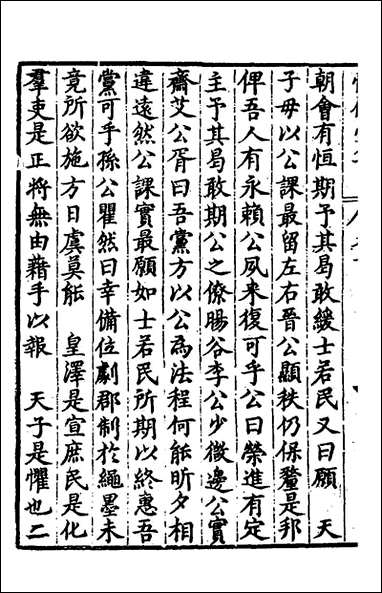 朝會有恒期予其曷敢緩士若民又曰願　天
子毋以公課最留左右晉公顯秩仍保釐是邦
俾吾人有永賴公夙来復可乎公曰榮進有定
主予其曷敢期公之僚腸谷李公少微邊公實
齋艾公胥曰吾黨方以公為法程何能昕夕相
違遠然公課實最願如士若民所期以終惠吾
黨可乎孫公瞿然曰幸備位劇郡制於繩墨未
竟所欲施方日虞莫能　皇澤是宣庶民是化
羣吏是正將無由藉手以報　天子是懼也二